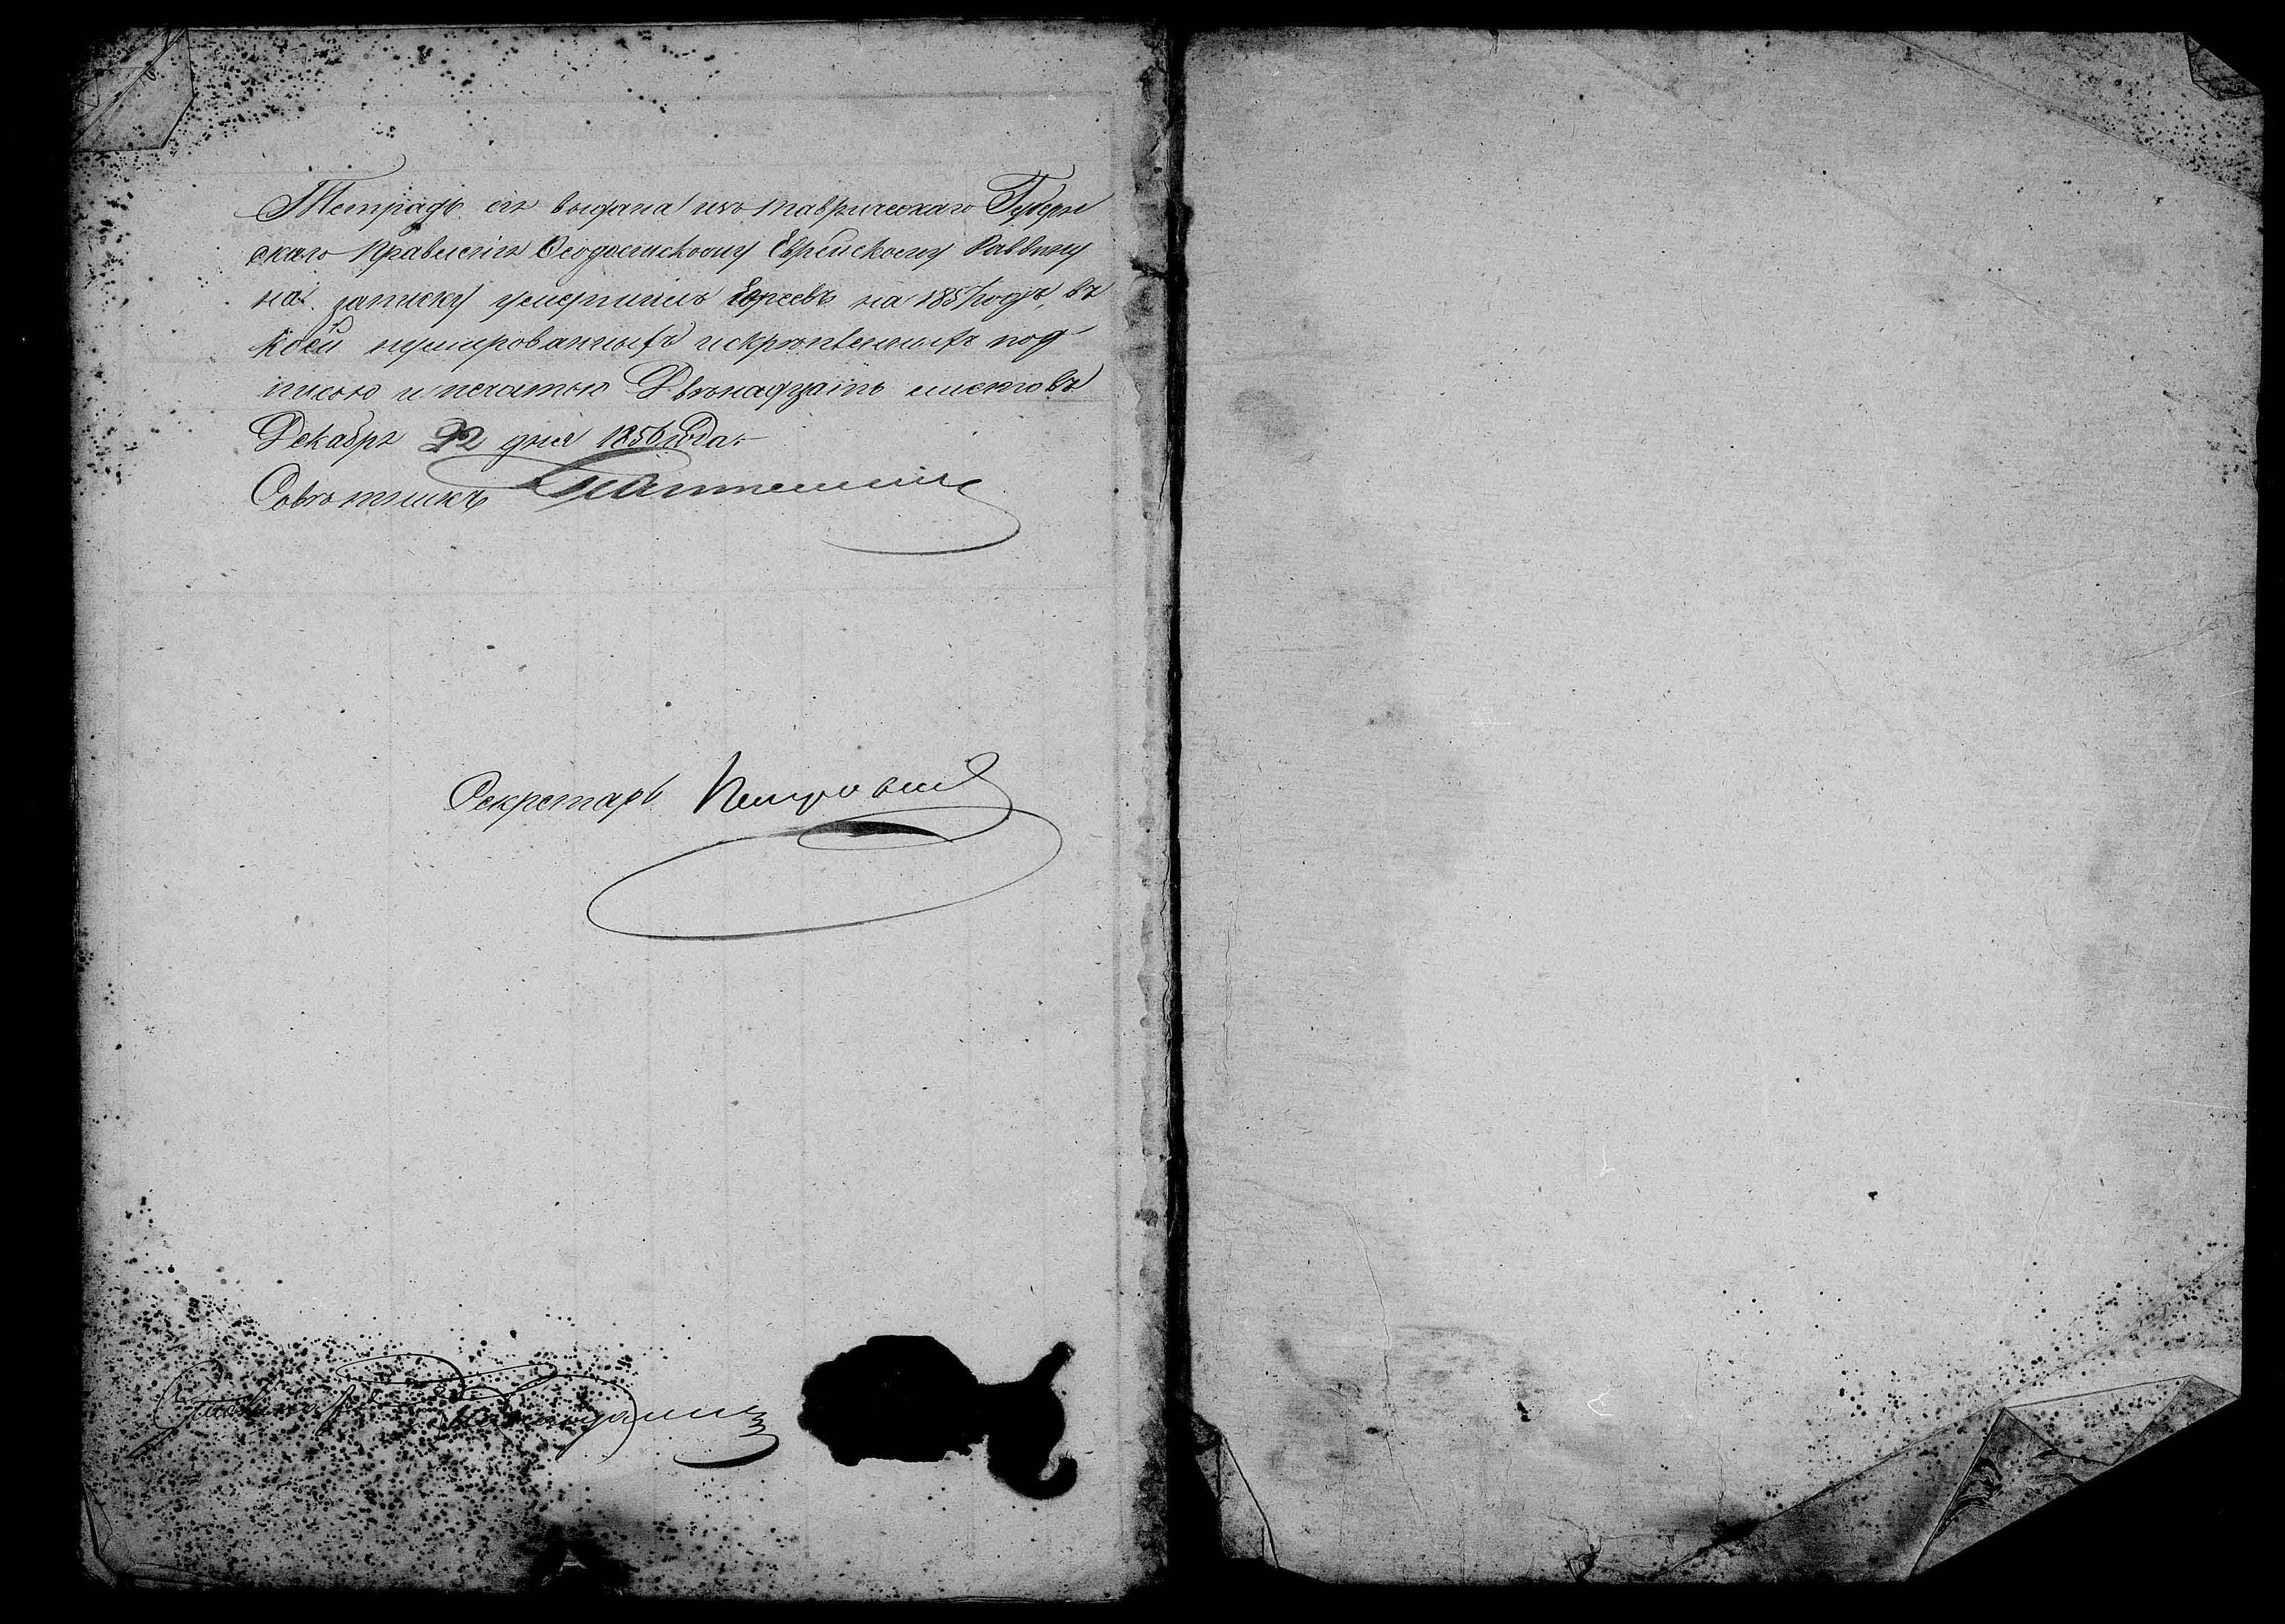 Тетрадь сія выдана изъ Таврическаго Губерн
скаго Правленія Ѳеодосійскому Еврейскому Раввину
на записку умершихъ Евреевъ на 1857 годъ, въ
коей нумерованныхъ и скрѣпленныхъ под
писью и печатью Двѣнадцать листовъ
Декабря 22 дня 1856 года.
Совѣтникъ
Секретарь Петровскій